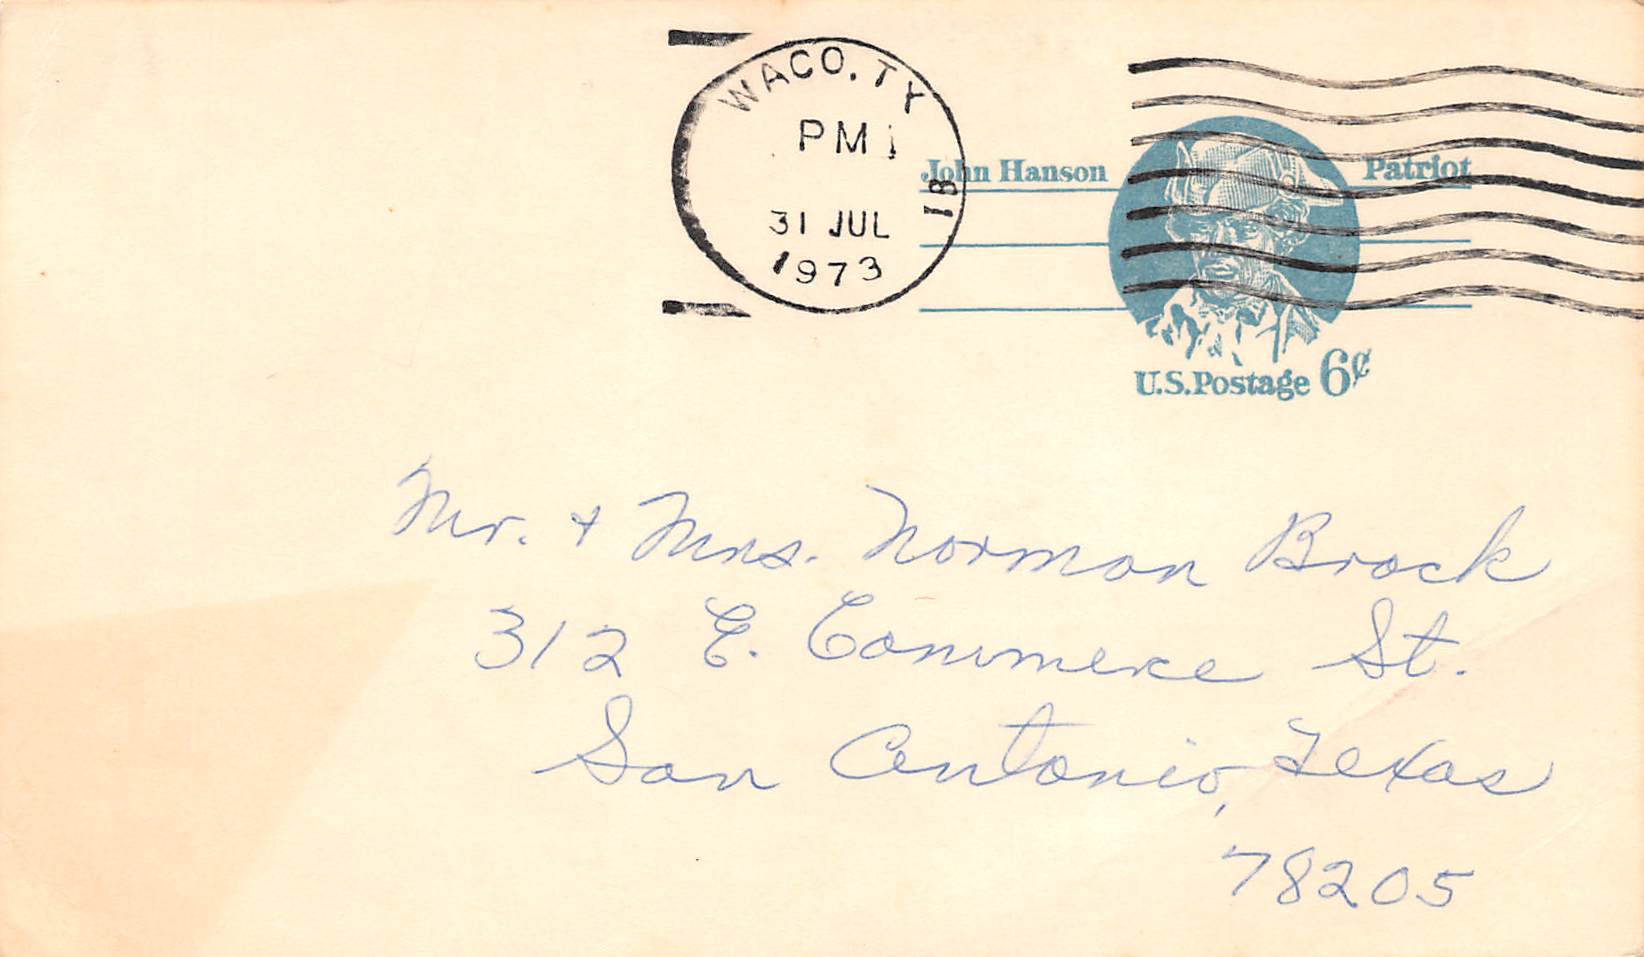 WACO, TX
PM
31 JUL
1973
18
John Hanson Patriot
U.S. Postage 6¢
Mr. + Mrs. Norman Brock
312 E. Commerce St.
San Antonio, Texas
78205